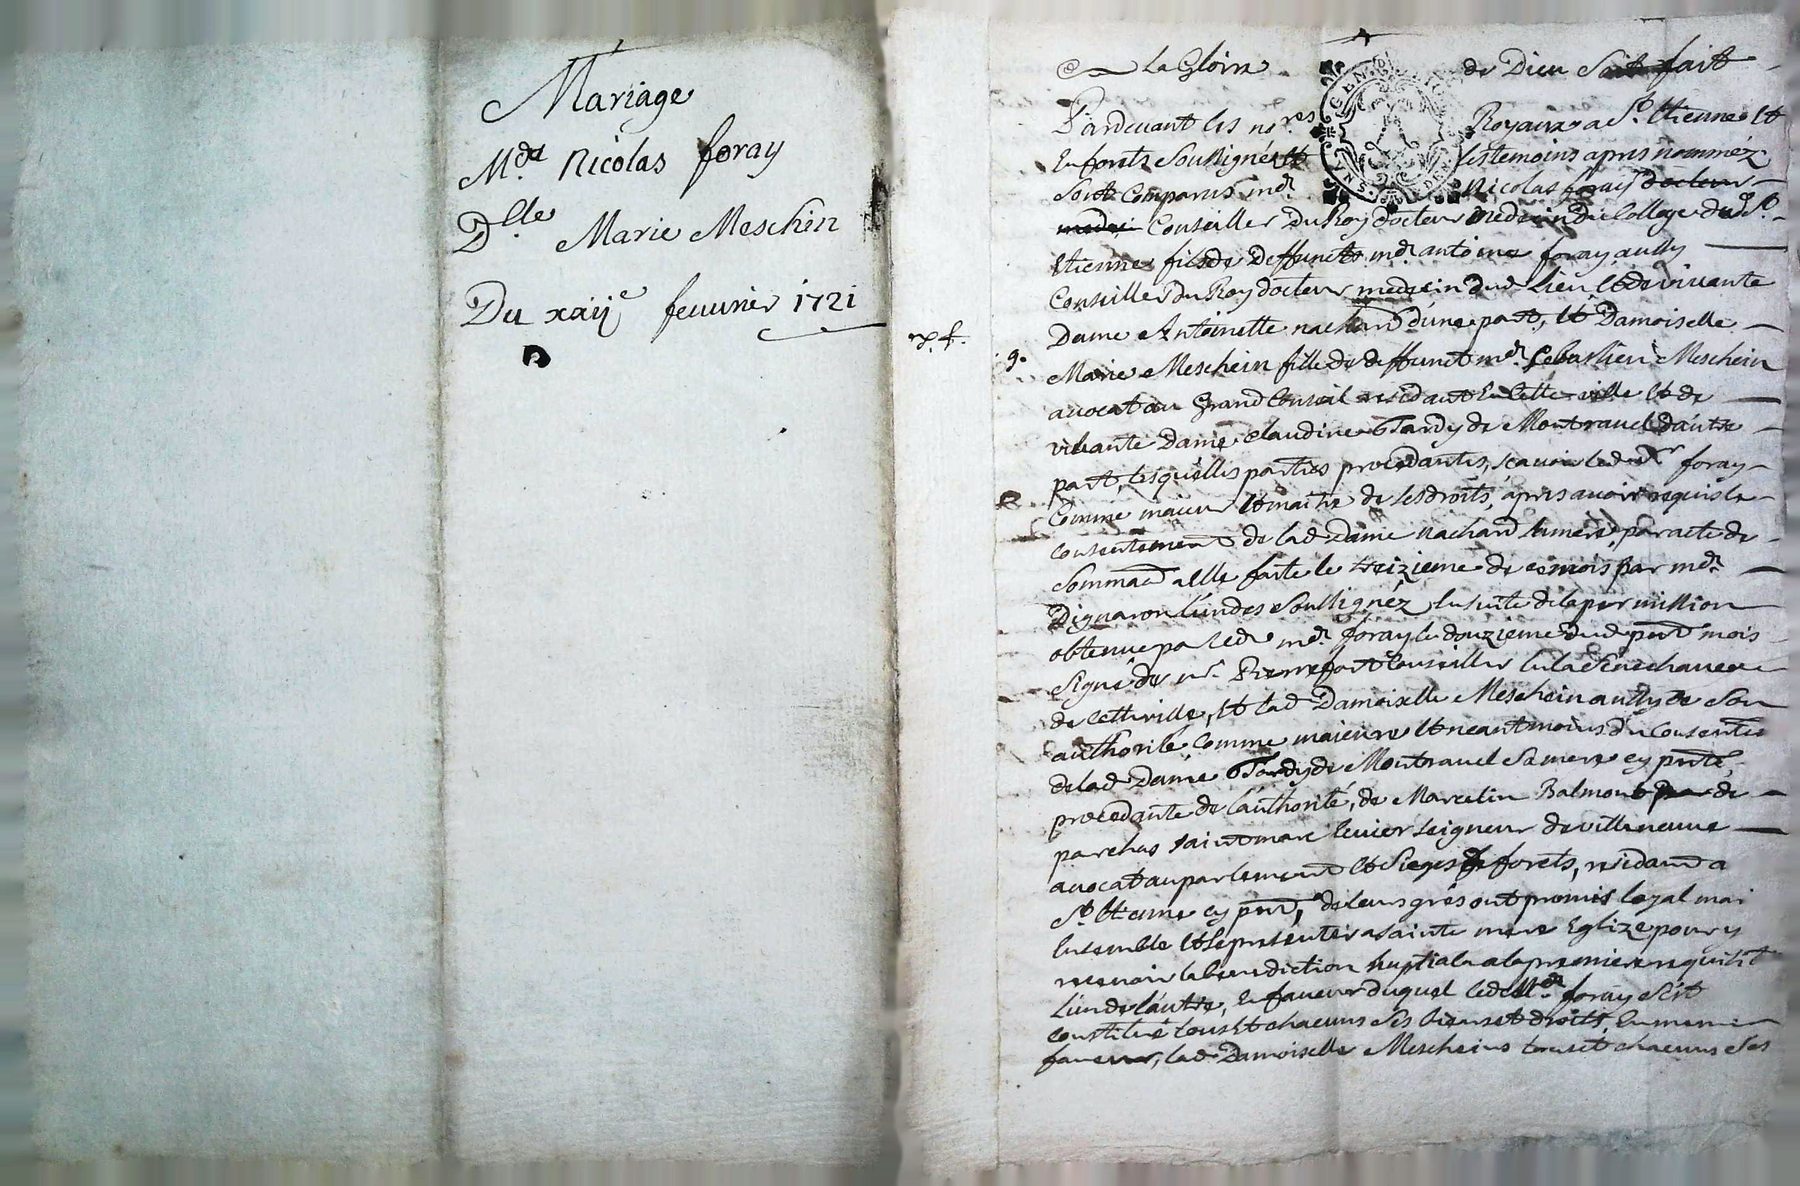 Mariage
Md Nicolas foray
Dlle Marie Meschin
Du xaiije feuurier 1721
La Gloire de Dieu Soit fait
Pardeuant les nores Royaux a St. Etienne Et
En forets Soussignés Et les temoins apres nommez
Sont Comparus md Nicolas foray docteur
medei Conseiller Du Roy docteur medecin du College dud St
Etienne fils de deffunct md antoine foray aussy
Conseiller du Roy docteur medecin dud Lieu Et de viuante
Dame Antoinette nachard d'une part, Et Damoiselle
Marie Meschein fille de deffunct md Sebastien Meschein
auocat au Grand Conseil residant En Cette ville Et de
viuante Dame Claudine Tardy de Montrauel d'autre
part, lesquelles parties procedantes, scauoir led sr foray
Comme maieur Et maitre de ses droits, apres auoir requis le
consentement de lad Dame nachard sa mere, par acte de
Sommaon a Elle faite le treizieme de ce mois par md
Dignaron l'un des Soussignéz, En suite de la permission
obtenue par led md foray le douzieme dud pnt mois
Signé de mr. Pierrefort Conseiller En la Senechaucee
de Cette ville, Et lad Damoiselle Meschein aussy de Son
authorité Comme maieure Et neantmoins du Consentet
de lad Dame Tardy de Montrauel Sa mere cy pnte,
procedante de l'authorité, de Marcelin Balmont de
parchas saint marc leuier seigneur de villeneuue
auocat au parlement Et Sieges de forets, residant a
St. Etienne cy pnt, de leurs grés ont promis loyal mari
Ensemble Et Se presenter a sainte mere Eglize pour y
receuoir la benediction nuptiale a la premiere requisit
L'un de l'autre, En faueur duquel led Md. foray S'est
constitué tous Et chacuns Ses biens et droits, En meme
faueur, lad Damoiselle Meschein tous et chacuns Ses